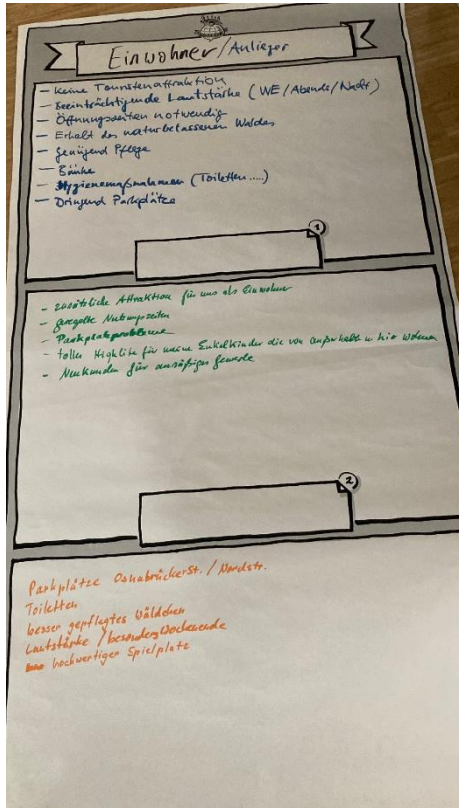 Einwohner/Anlieger
- Keine Touristenattraktion
- Beeinträchtigende Lautstärke (WE/Abende/Nacht)
- Öffnungszeiten notwendig
- Erhalt des naturbelassenen Waldes
- Genügend Pflege
- Bänke
- Hygienemaßnahmen (Toiletten.....)
- Dringend Parkplätze
1
- zusätzliche Attraktion für uns als Einwohner
- geregelte Nutzungszeiten
- Parkplatzprobleme
- tolles Highlite für meine Enkelkinder die von außerhalb u. hier wohnen
- Neukunden für ansäßiges Gewerbe
2
Parkplätze OsnabrückerSt. / Nordstr.
Toiletten
besser gepflegtes Wäldchen
Lautstärke / besonders Wochenende
hochwertiger Spielplatz